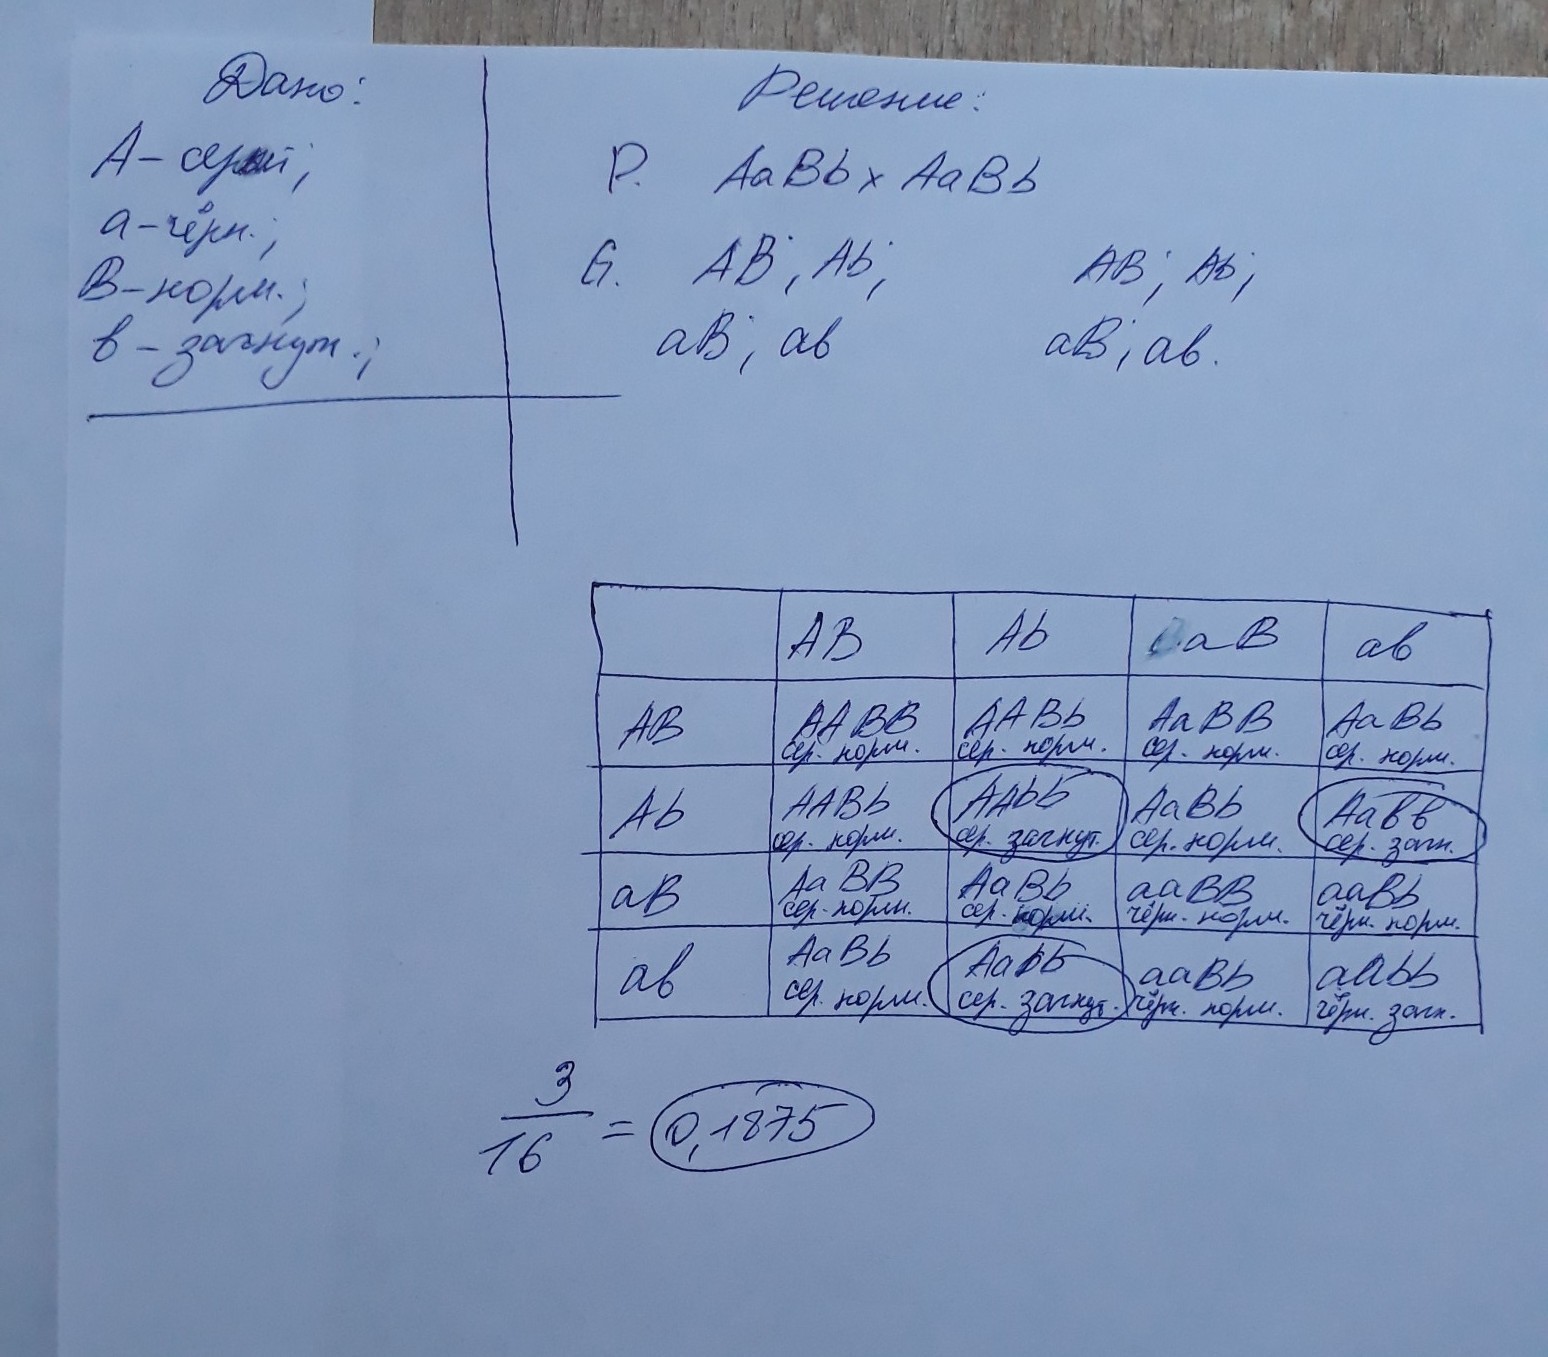 Дано:
А - серый;
а - чёрн.;
В - норм.;
в - загнут.;
Решение:
P. AaBb x AaBb
G. AB; Ab; AB; Ab;
aB; ав aB; ав.
AB Ab aB ав
AB AABB AABb AaBB AaBb
сер. норм. сер. норм. сер. норм. сер. норм.
Ab AABb AAbb AaBb Aaвв
сер. норм. сер. загнут. сер. норм. сер. загн.
aB AaBB AaBb aaBB aaBb
сер. норм. сер. норм. чёрн. норм. чёрн. норм.
ав AaBb Aabb aaBb aabb
сер. норм. сер. загнут. чёрн. норм. чёрн. загн.
3
16 = 0,1875